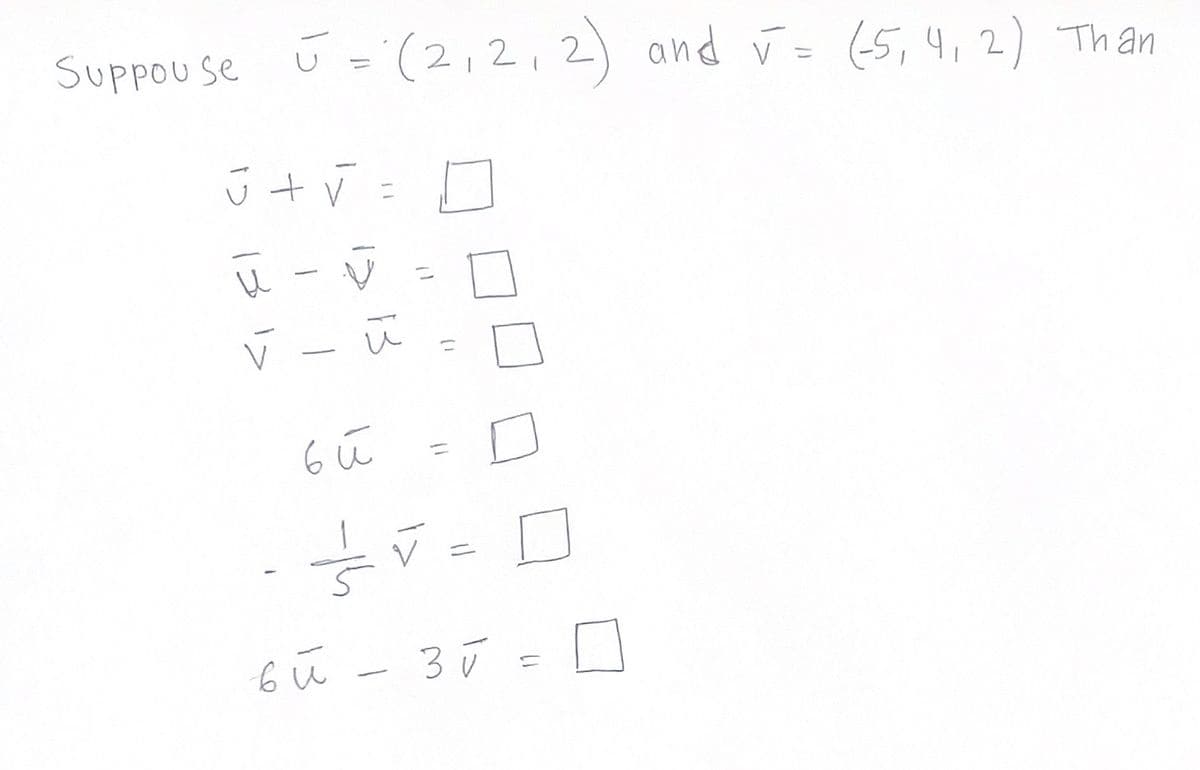 Suppouse ū = (2, 2, 2) and v̄ = (-5, 4, 2) Than
ū + v̄ = □
ū - v̄ = □
v̄ - ū = □
6ū = □
- 1/5 v̄ = □
6ū - 3v̄ = □